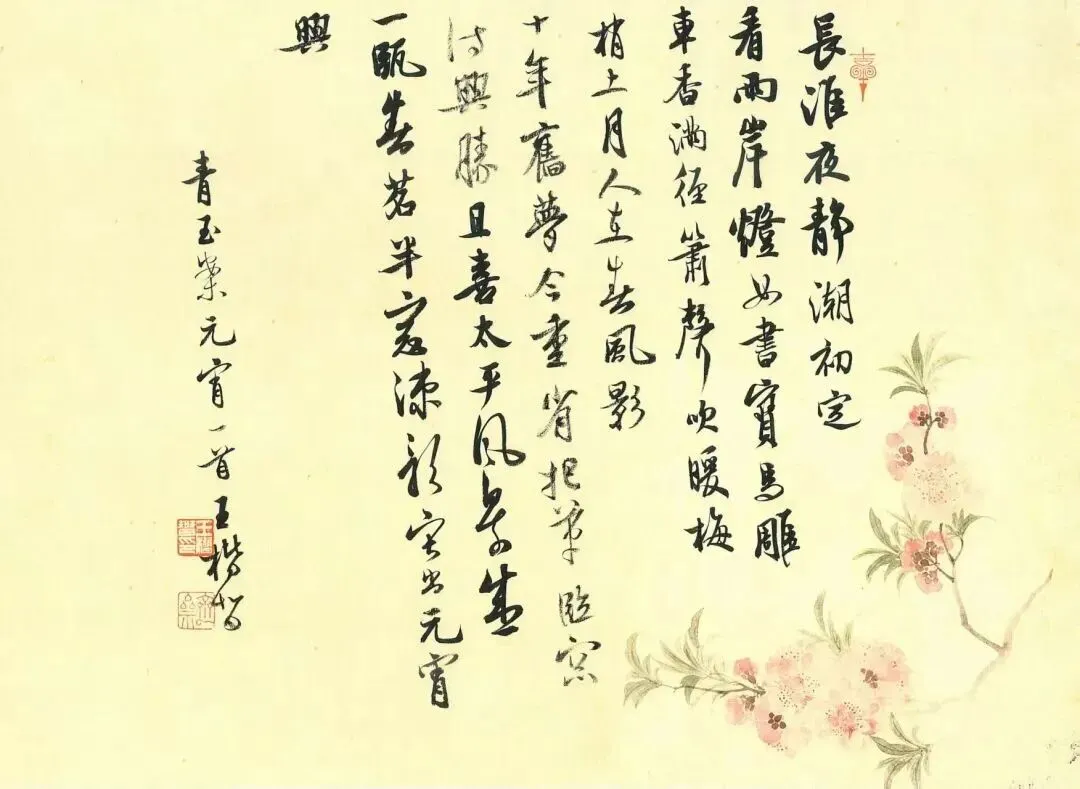 長淮夜静潮初定
看兩岸燈如書寶馬雕
車香滿徑簫聲吹暖梅
梢上月人在春風影
十年舊夢今重省把筆臨窗
詩興勝且喜太平風景盛
一甌春茗半窗疎影寫出元宵
興
青玉案元宵一首王楷